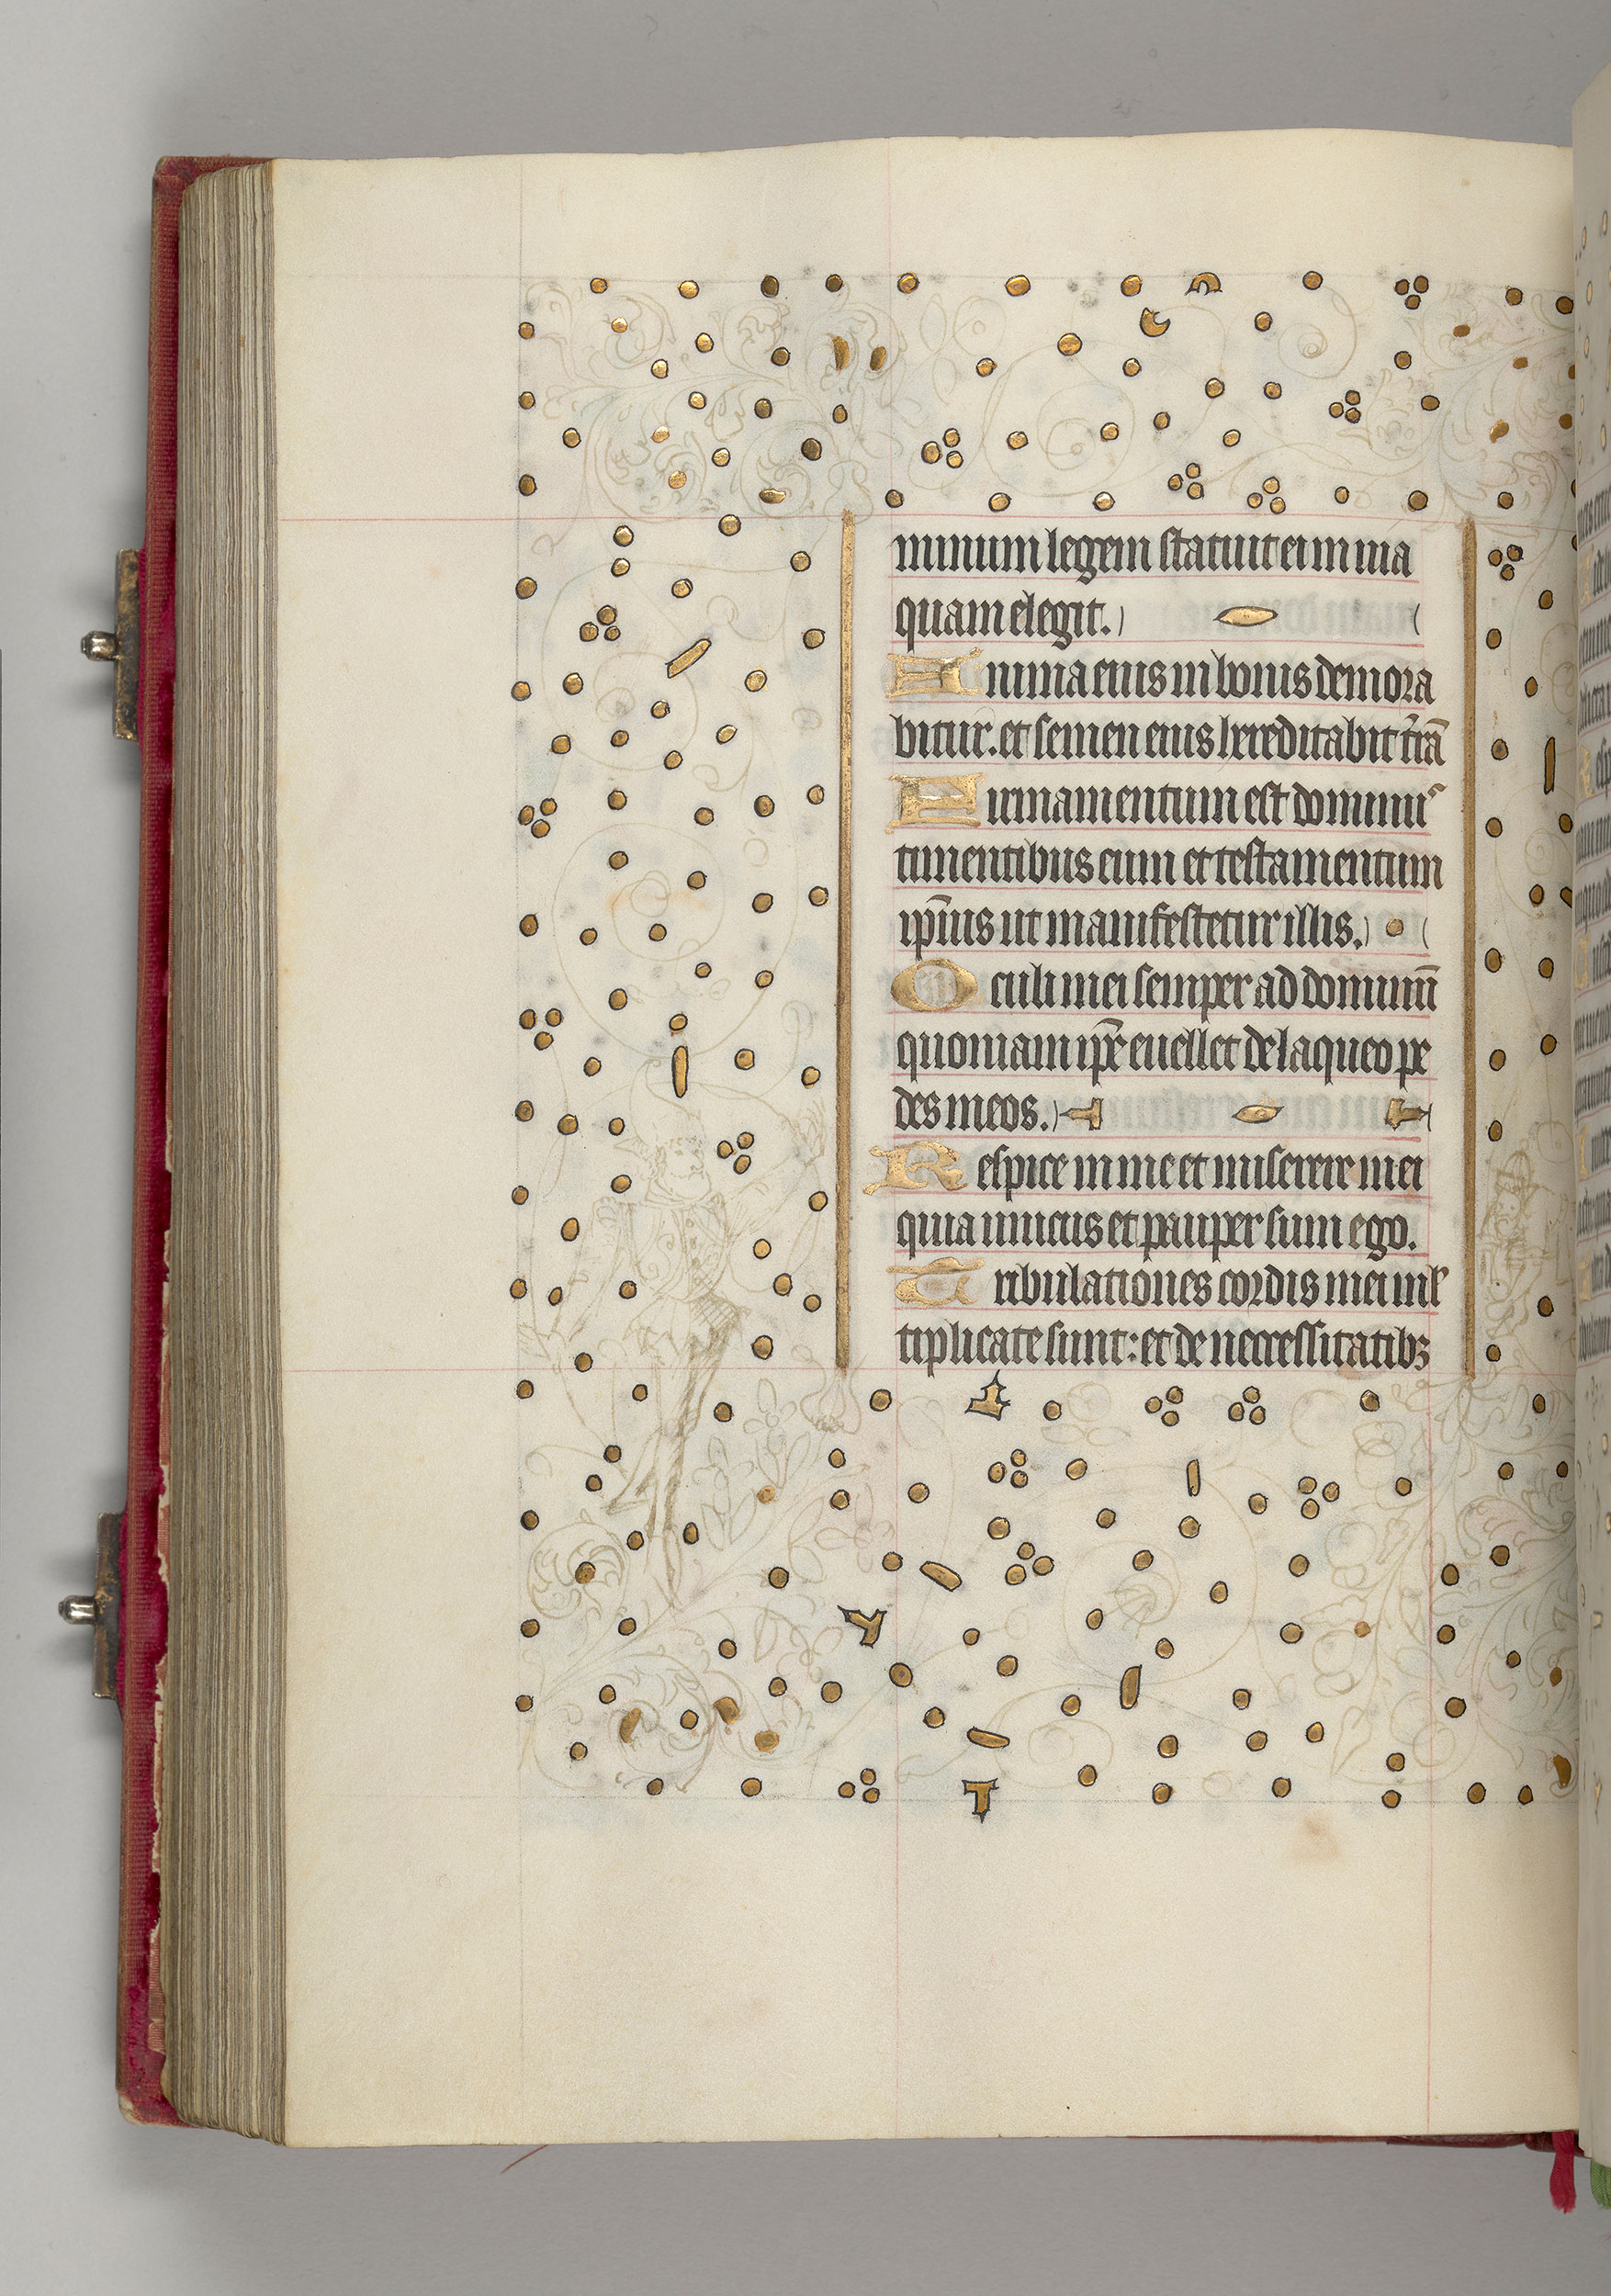 minum legem statuit ei in uia
quam elegit.
Anima eius in bonis demora
bitur. et semen eius hereditabit t̄rā
Firmamentum est dominus
timentibus eum et testamentum
ip̄ius ut manifestetur illis.
Oculi mei semper ad dominū
quoniam ip̄e euellet de laqueo pe
des meos.
Respice in me et miserere mei
quia unicus et pauper sum ego.
Tribulationes cordis mei ml̓
tiplicate sunt: et de necessitatibꝫ